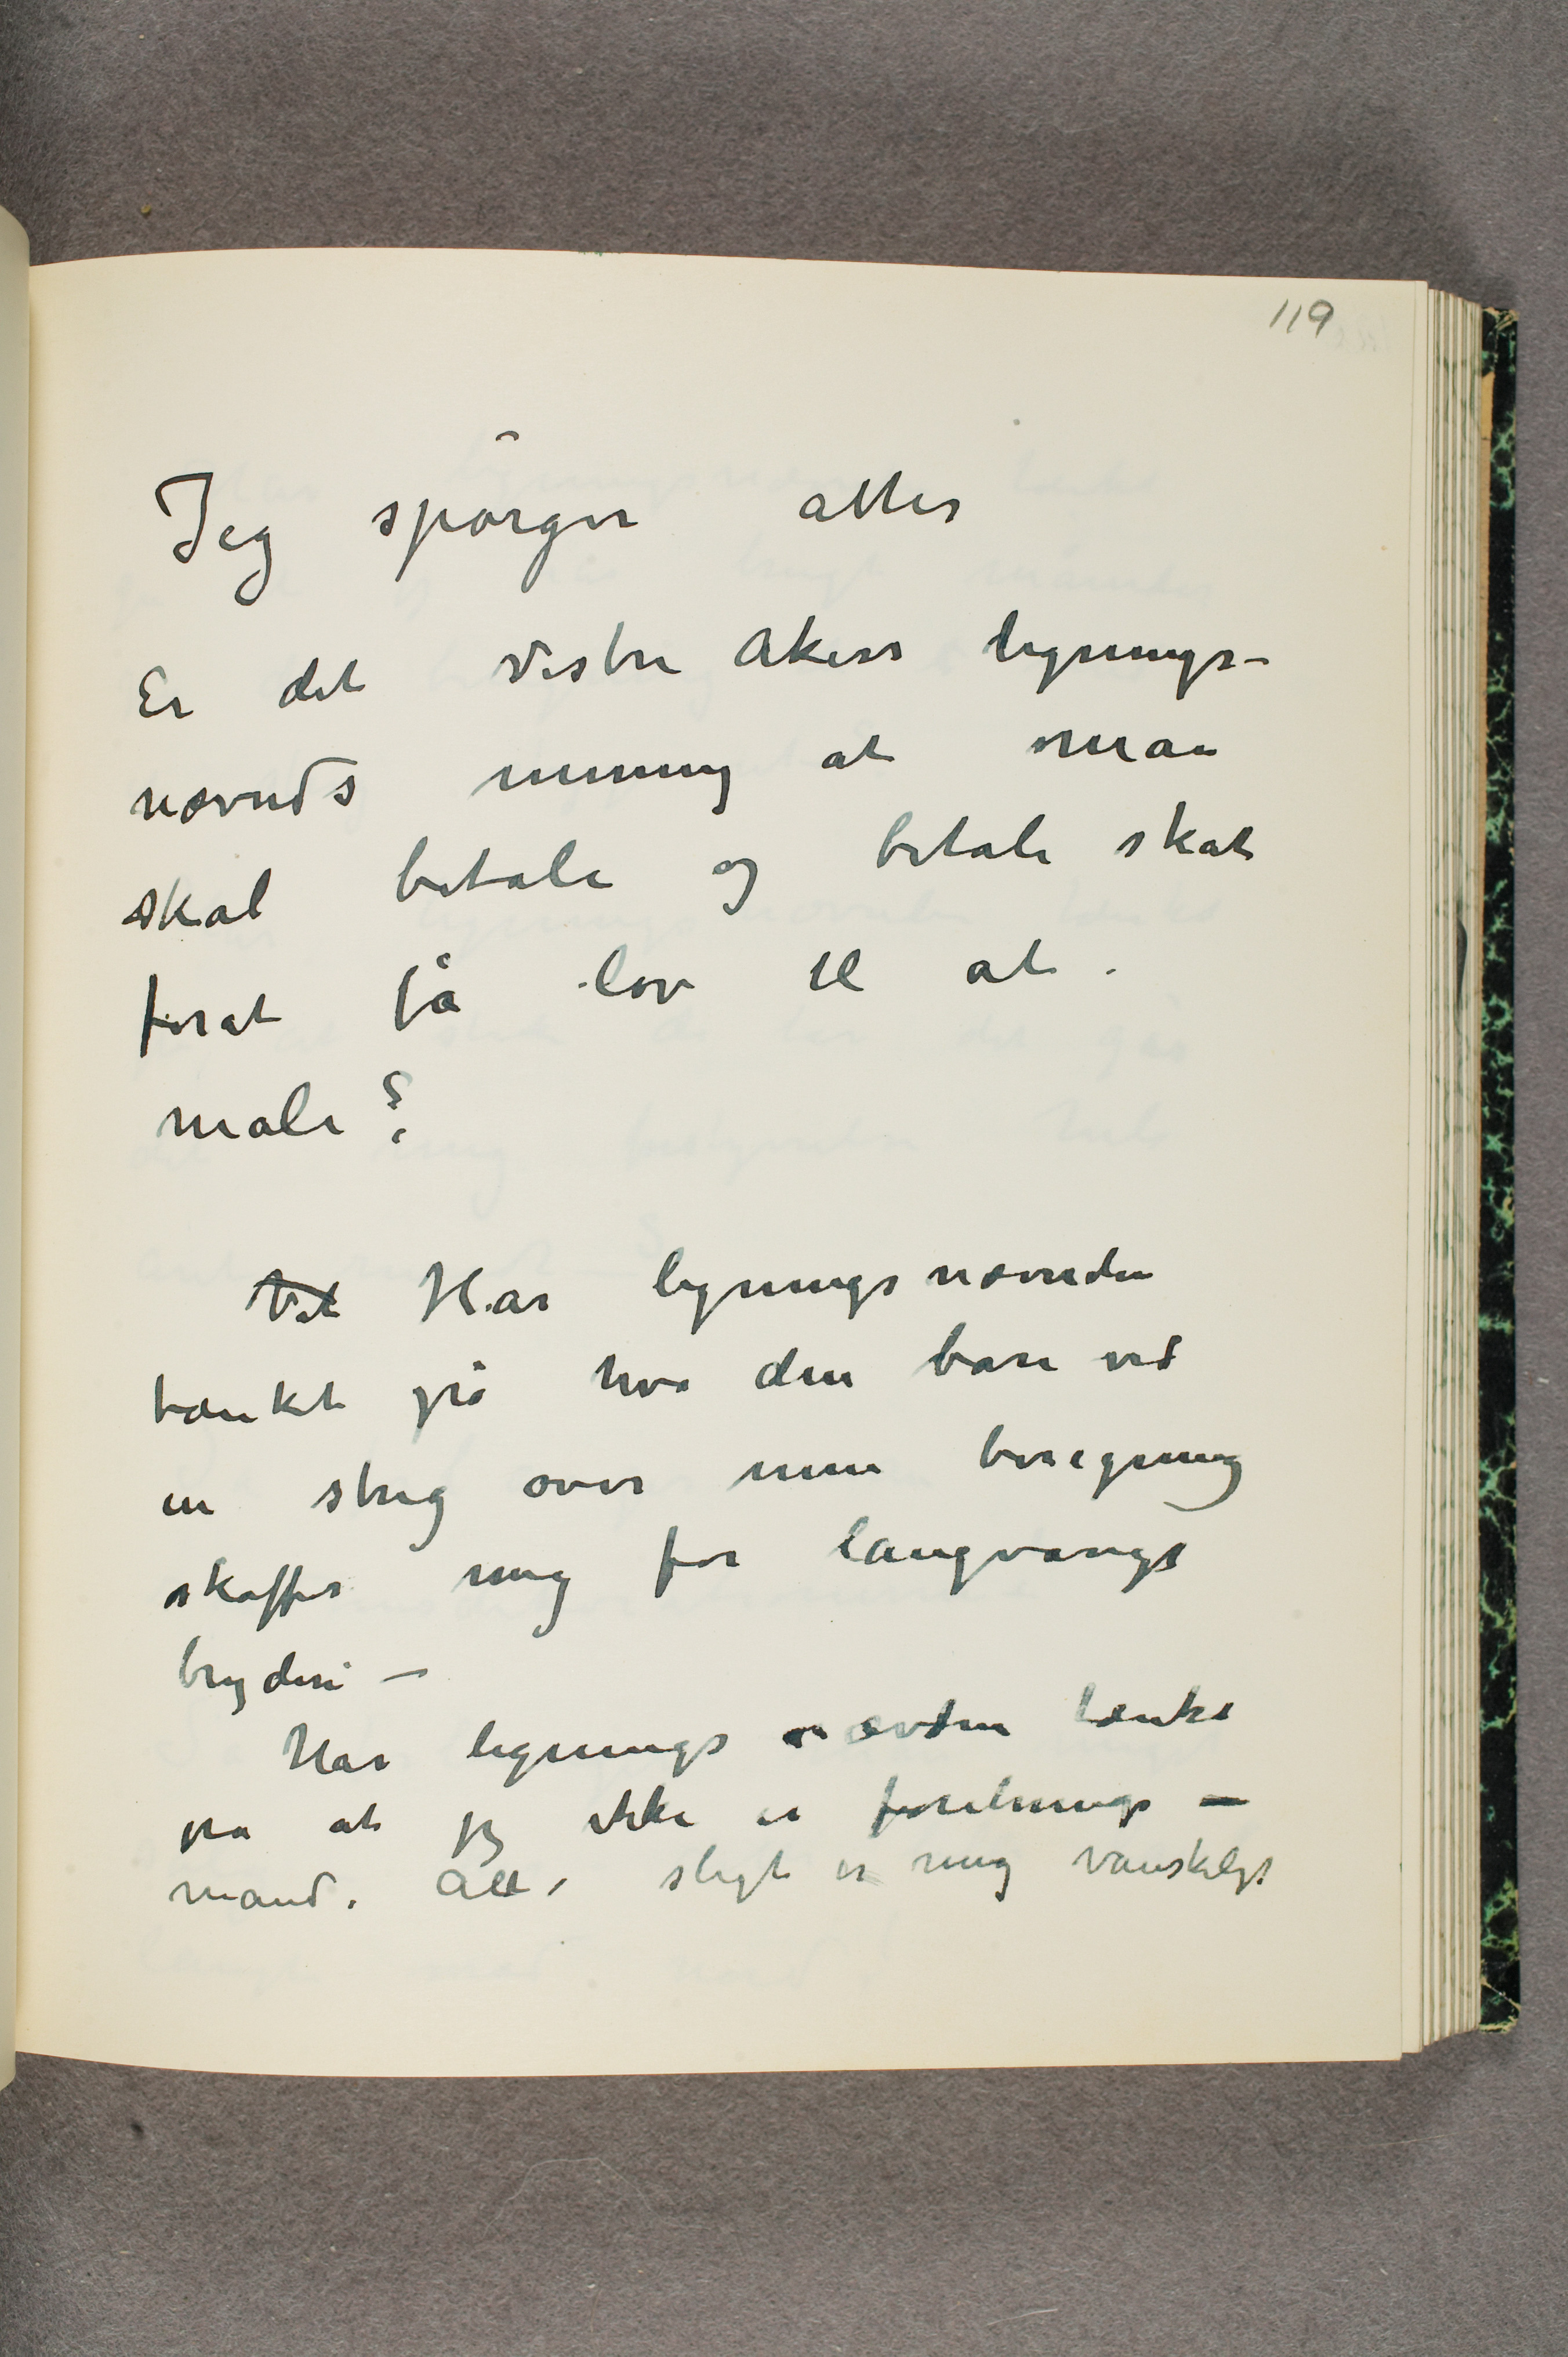 119
Jeg spørger atter
Er det Vestre Akers lignings-
nævnds mening at man
skal betale og betale skat
forat få lov til at
male?
Vet Har ligningsnævnden
tænkt på hva den bare ved
en streg over min beregning
skaffer mig for langvarigt
bryderi –
Har lignings nævden tænkt
på at jeg ikke er foretnings –
mand. Alt sligt er mig vanskeligt